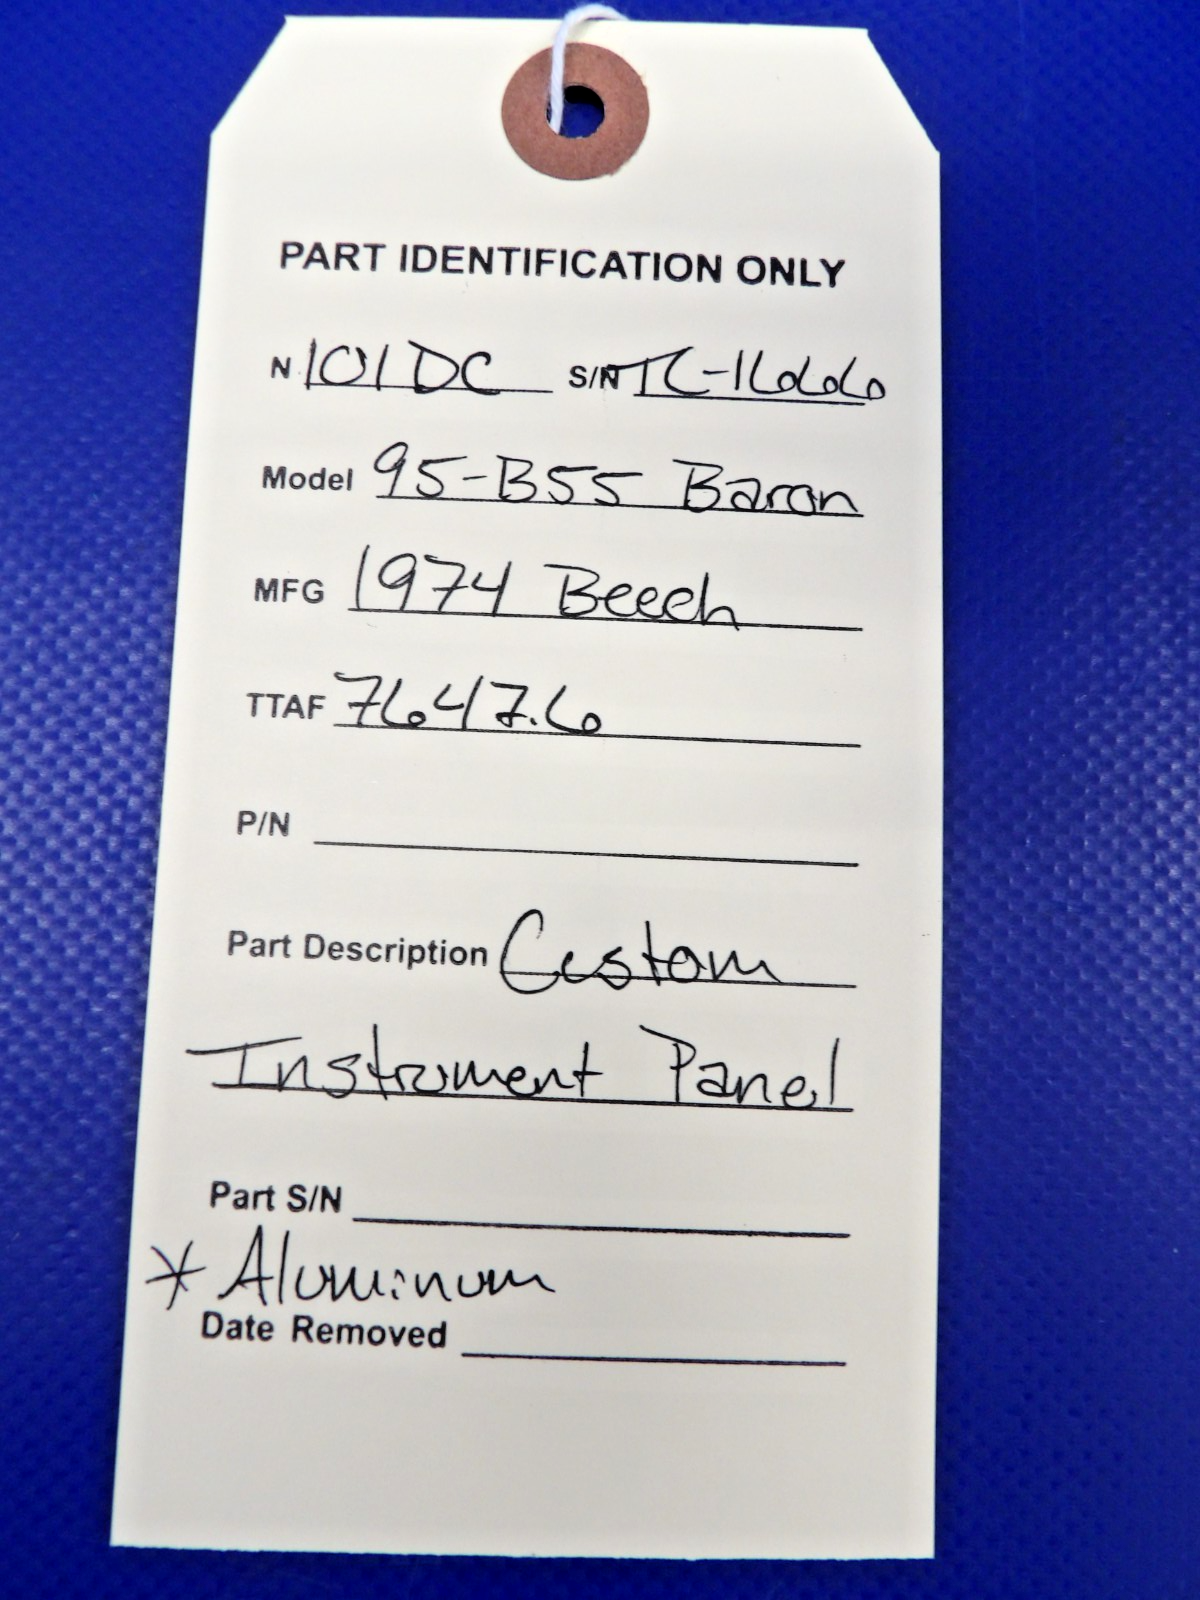 PART IDENTIFICATION ONLY
N 101DC S/N TC-1666
Model 95-B55 Baron
MFG 1974 Beech
TTAF 7647.6
P/N
Part Description Custom
Instrument Panel
Part S/N
* Aluminum
Date Removed